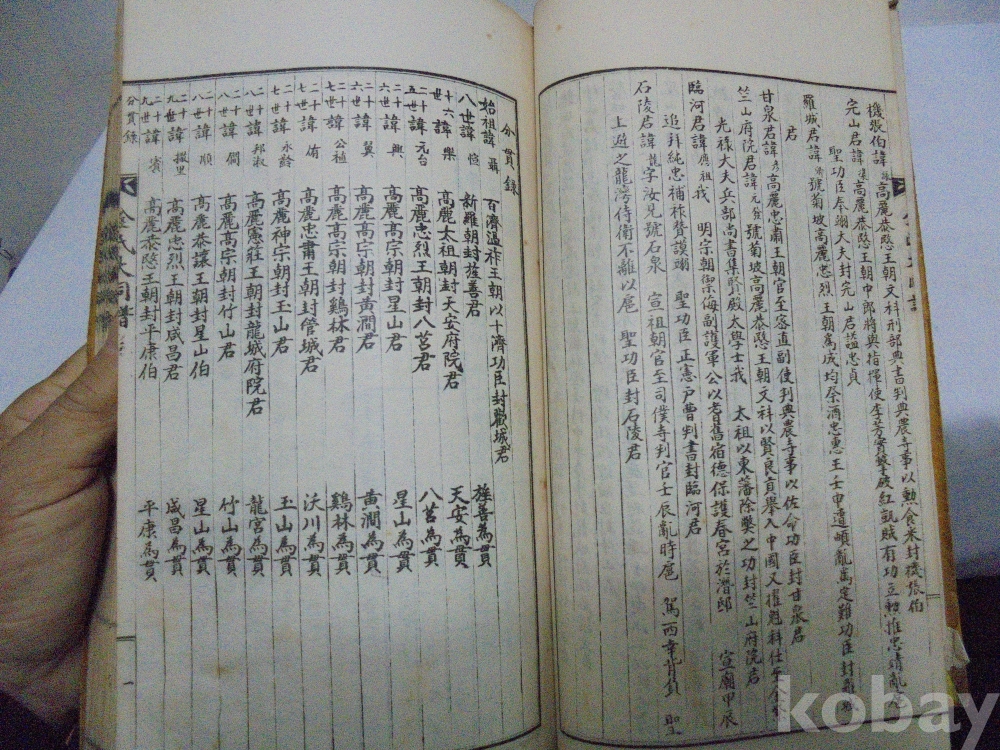 機張伯諱 高麗恭愍王朝文科刑部典書判典農寺事以勳食釆封機張伯
完山君諱集高麗恭愍王朝中郎將與指揮使李芳實擊破紅亂賊有功立勳惟忠靖亂
聖功臣奉翊大夫封完山君諡忠貞
羅城君諱 號菊坡高麗忠烈王朝爲成均祭酒忠惠王壬申遭頔亂爲定難功臣封
君
甘泉君諱 高麗忠肅王朝官至密直副使判典農寺事以佐命功臣封甘泉君
竺山府院君諱元 號菊坡高麗恭愍王朝文科以賢良貢擧入中國又擢魁科仕至金
光祿大夫兵部尙書集賢殿太學士我 太祖以東藩除獘之功封竺山府院君
臨河君諱應祖我 明宗朝禦侮副護軍公以耆舊宿德保護春宮於潛邸 宣廟甲辰
追拜純忠補祚贊謨 聖功臣正憲戶曹判書封臨河君
石陵君諱龍字汝見號石泉 宣祖朝官至司僕寺判官士辰亂時扈 駕西幸背負 聖
上遊之龍灣侍衛不離以扈 聖功臣封石陵君
分貫錄
始祖諱聶 百濟溫祚王朝以十濟功臣封歡城君
八世諱愃 新羅朝封旌善君 旌善爲貫
十六世諱樂 高麗太祖朝封天安府院君 天安爲貫
二十五世諱元台 高麗忠烈王朝封八莒君 八莒爲貫
二十六世諱興 高麗高宗朝封星山君 星山爲貫
二十六世諱翼 高麗高宗朝封黃澗君 黃澗爲貫
二十七世諱公植 高麗高宗朝封鷄林君 鷄林爲貫
二十七世諱侑 高麗忠肅王朝封管城君 沃川爲貫
二十七世諱永齡 高麗神宗朝封王山君 玉山爲貫
二十八世諱邦淑 高麗憲莊王朝封龍城府院君 龍宮爲貫
二十八世諱僩 高麗高宗朝封竹山君 竹山爲貫
二十八世諱順 高麗恭讓王朝封星山伯 星山爲貫
二十九世諱 里 高麗忠烈王朝封咸昌君 咸昌爲貫
二十九世諱賓 高麗恭愍王朝封平康伯 平康爲貫
分貫錄
全氏大同譜
一
kobay